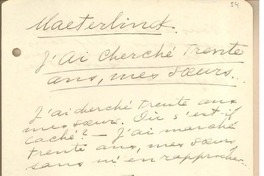 34
Maeterlinck
J'ai cherché trente
ans, mes sœurs.
J'ai cherché trente ans
mes sœurs. Où s'est-il
caché? — J'ai marché
trente ans, mes sœurs
sans m'en rapprocher.